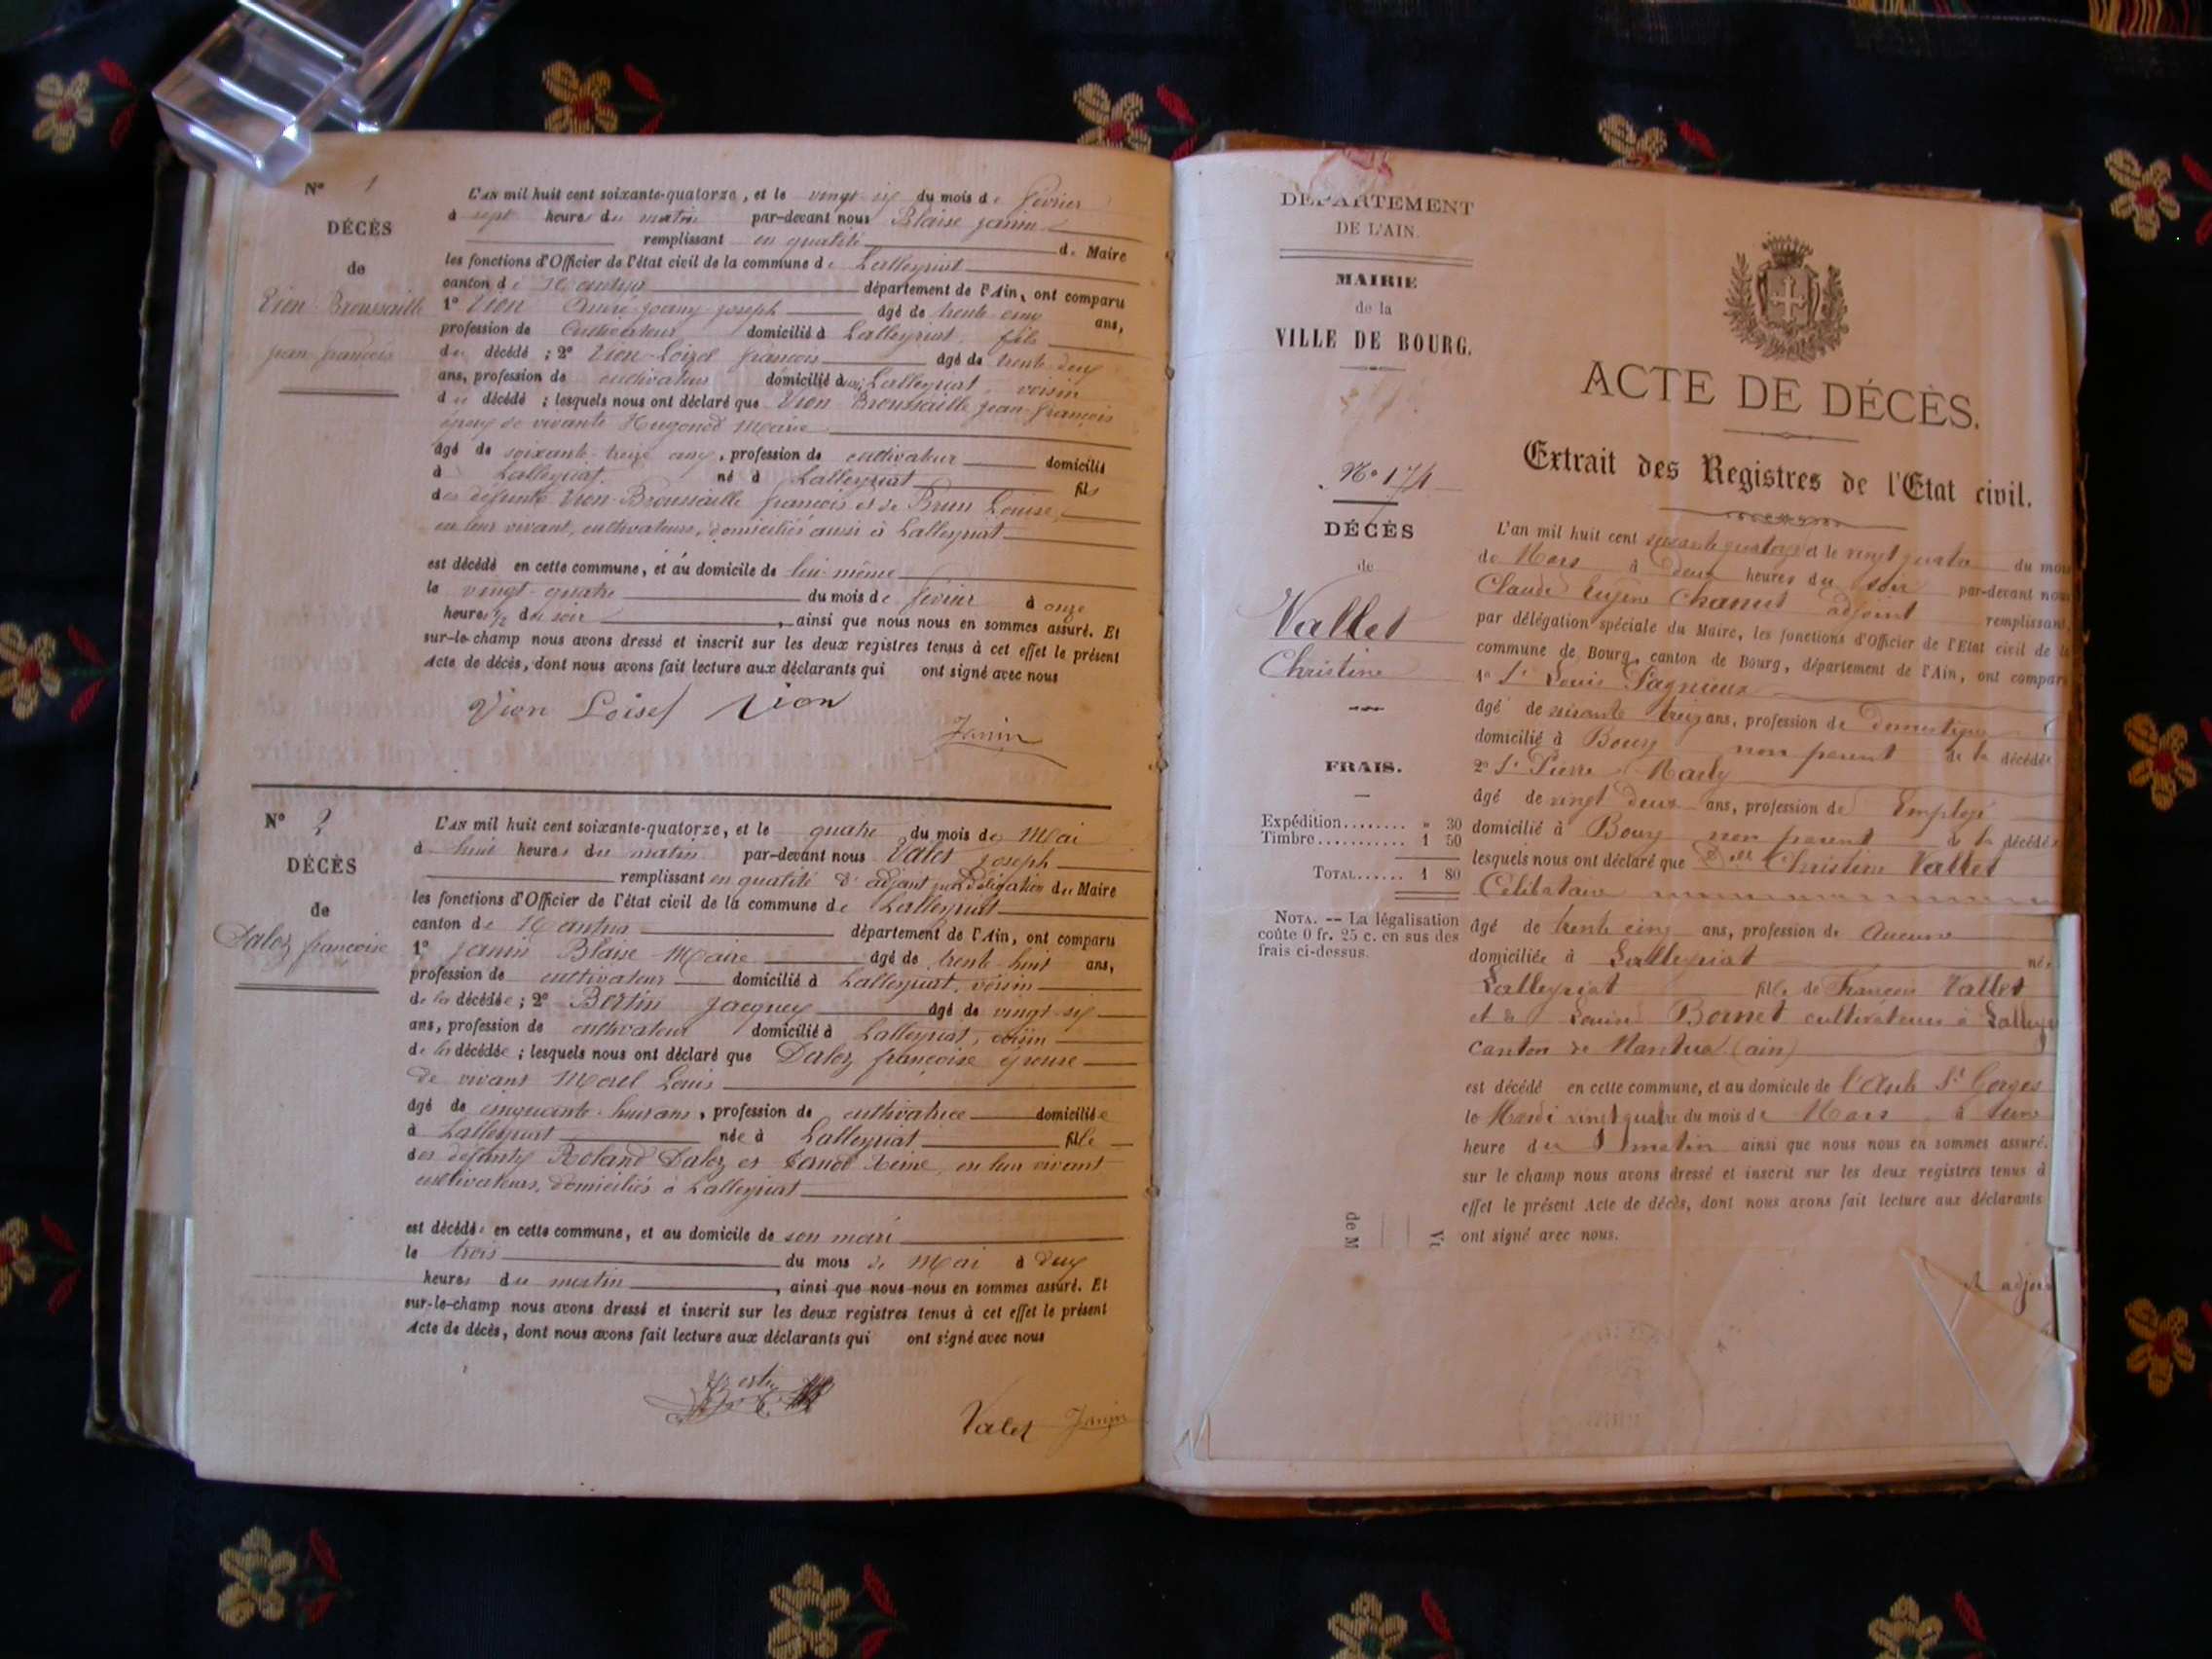 N° 1
DÉCÈS
de
Vion-Broussaille
jean-françois
L'AN mil huit cent soixante-quatorze, et le vingt-six du mois de février
à sept heures du matin par-devant nous Blaise janin
remplissant en qualité de Maire
les fonctions d'Officier de l'état civil de la commune de Lalleyriat
canton de Nantua département de l'Ain, ont comparu
1° Vion joseph âgé de trente cinq ans,
profession de Cultivateur domicilié à Lalleyriat, fils
du décédé ; 2° Vion-Loisel françois âgé de trente-deux
ans, profession de cultivateur domicilié à Lalleyriat, voisin
du décédé ; lesquels nous ont déclaré que Vion Broussaille jean-françois
époux de vivante Hugonod Marie
âgé de soixante-treize ans, profession de cultivateur domicilié
à Lalleyriat né à Lalleyriat fils
des défunts Vion-Broussaille françois et de Brun Louise,
en leur vivant, cultivateurs, domiciliés aussi à Lalleyriat
est décédé en cette commune, et au domicile de lui-même
le vingt-quatre du mois de février à onze
heures ½ du soir, ainsi que nous nous en sommes assuré. Et
sur-le-champ nous avons dressé et inscrit sur les deux registres tenus à cet effet le présent
Acte de décès, dont nous avons fait lecture aux déclarants qui ont signé avec nous
Vion Loisel Vion
Janin
N° 2
DÉCÈS
de
Daloz françoise
L'AN mil huit cent soixante-quatorze, et le quatre du mois de Mai
à huit heures du matin par-devant nous Valet joseph
remplissant en qualité d'adjoint par délégation du Maire
les fonctions d'Officier de l'état civil de la commune de Lalleyriat
canton de Nantua département de l'Ain, ont comparu
1° janin Blaise Maire âgé de trente-huit ans,
profession de cultivateur domicilié à Lalleyriat, voisin
de la décédée ; 2° Bertin jacques âgé de vingt-six
ans, profession de cultivateur domicilié à Lalleyriat, voisin
de la décédée ; lesquels nous ont déclaré que Daloz françoise épouse
de vivant Morel Louis
âgé de cinquante-huit ans, profession de cultivatrice domiciliée
à Lalleyriat née à Lalleyriat fille
des défunts Roland Daloz et en leur vivant
cultivateurs, domiciliés à Lalleyriat
est décédée en cette commune, et au domicile de son mari
le trois du mois de Mai à deux
heures du matin, ainsi que nous nous en sommes assuré. Et
sur-le-champ nous avons dressé et inscrit sur les deux registres tenus à cet effet le présent
Acte de décès, dont nous avons fait lecture aux déclarants qui ont signé avec nous
Bertin
Valet Janin
DÉPARTEMENT
DE L'AIN.
MAIRIE
de la
VILLE DE BOURG.
N° 174
DÉCÈS
de
Vallet
Christine
FRAIS.
Expédition........ » 30
Timbre........... 1 50
TOTAL...... 1 80
NOTA. -- La légalisation
coûte 0 fr. 25 c. en sus des
frais ci-dessus.
ACTE DE DÉCÈS.
Extrait des Registres de l'Etat civil.
L'an mil huit cent soixante quatorze et le vingt quatre du mois
de Mars à deux heures du soir par-devant nous
Claude Eugène Chanut adjoint remplissant,
par délégation spéciale du Maire, les fonctions d'Officier de l'Etat civil de la
commune de Bourg, canton de Bourg, département de l'Ain, ont comparu
1° Sr Louis Pagnieux
âgé de soixante treize ans, profession de domestique
domicilié à Bourg non parent de la décédée
2° Sr Pierre Marly
âgé de vingt deux ans, profession de Employé
domicilié à Bourg non parent de la décédée
lesquels nous ont déclaré que Dlle Christine Vallet
Célibataire
âgé de trente cinq ans, profession de Aucune
domiciliée à Lalleyriat née
Lalleyriat fille de François Vallet
et de Louise Bornet cultivateurs à Lalley
canton de Nantua (ain)
est décédé en cette commune, et au domicile de l'Asile St Gorges
le Mardi vingt quatre du mois de Mars à une
heure du matin ainsi que nous nous en sommes assuré.
sur le champ nous avons dressé et inscrit sur les deux registres tenus à
effet le présent Acte de décès, dont nous avons fait lecture aux déclarants
ont signé avec nous.
de M
adjoi